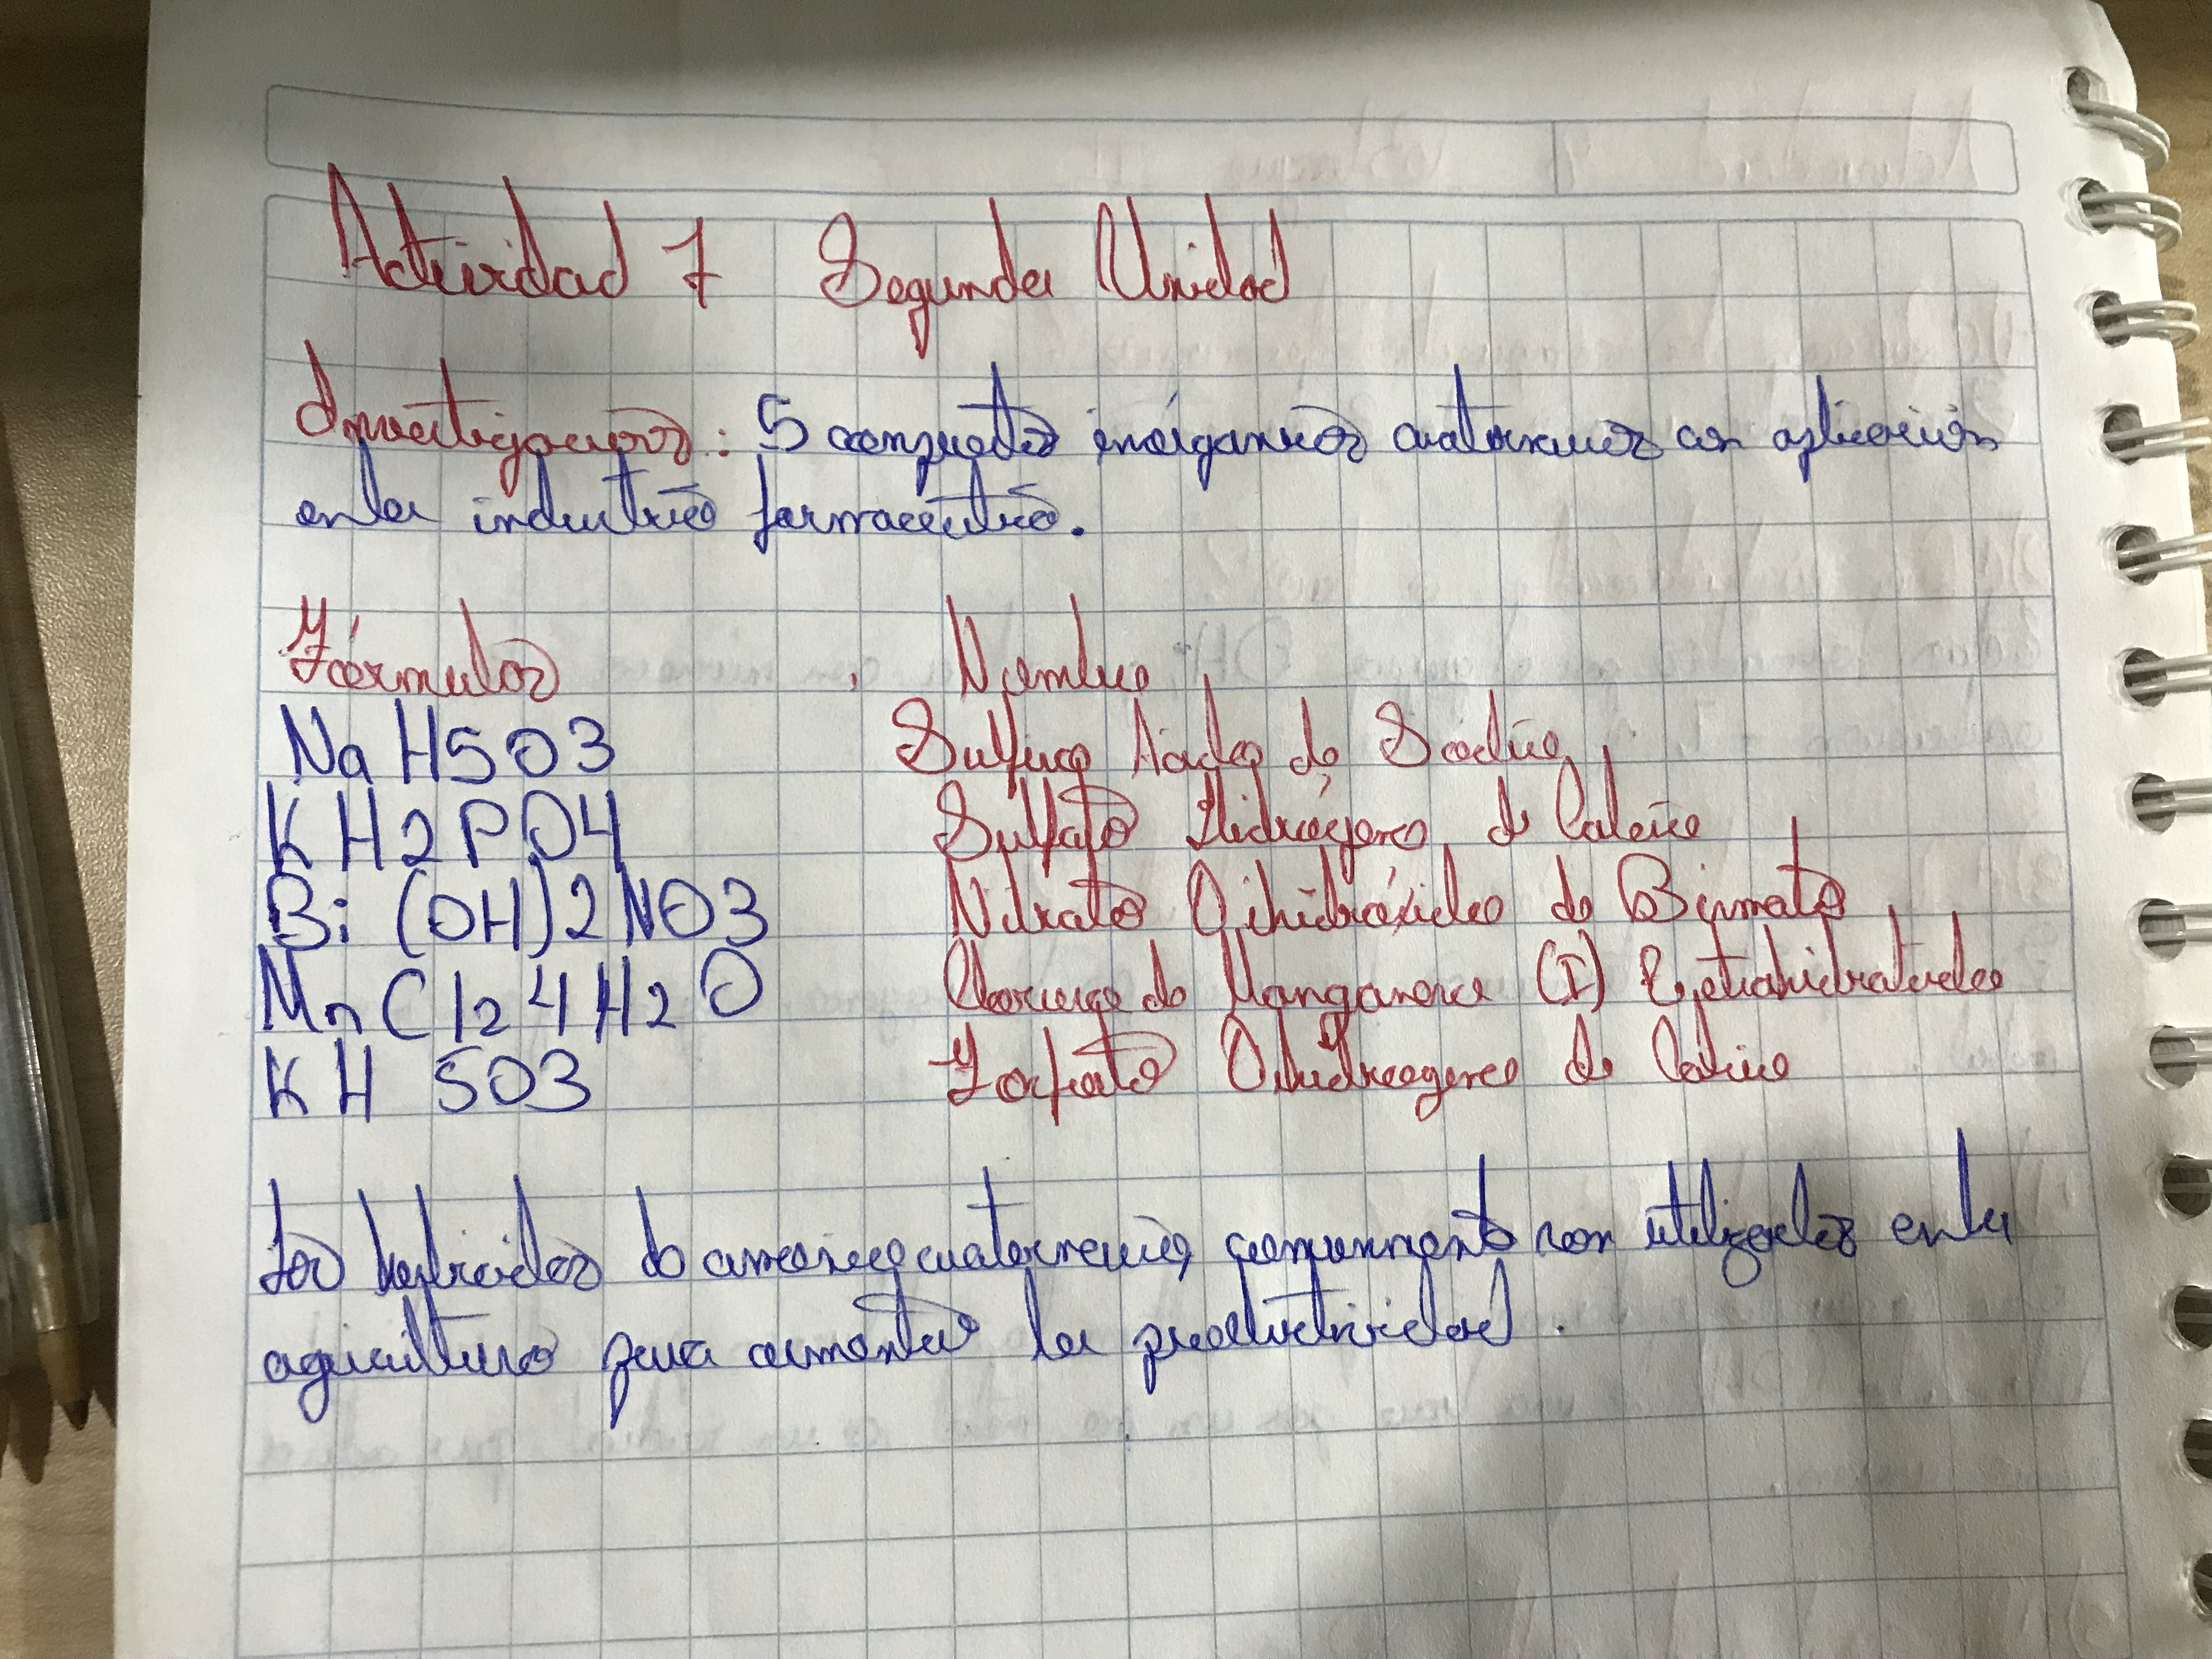 Actividad 7 Segunda Unidad
Investigación: 5 compuestos inórganicos cuaternarios con aplicación
en la industria farmaceutica.
Fórmulas Nombre
NaHSO3 Sulfuro Acido de Sodio
KH2PO4 Sulfato Hidrógeno de Calcio
Bi(OH)2NO3 Nitrato Dihidróxido de Bismuto
MnCl2 4H2O Cloruro de Manganeso (I) Tetrahidratado
KH SO3 Fosfato Dihidrogeno de Calcio
Los hidroxidos de amonio cuaternario comunmente son utilizados en la
agricultura para aumentar la productividad.